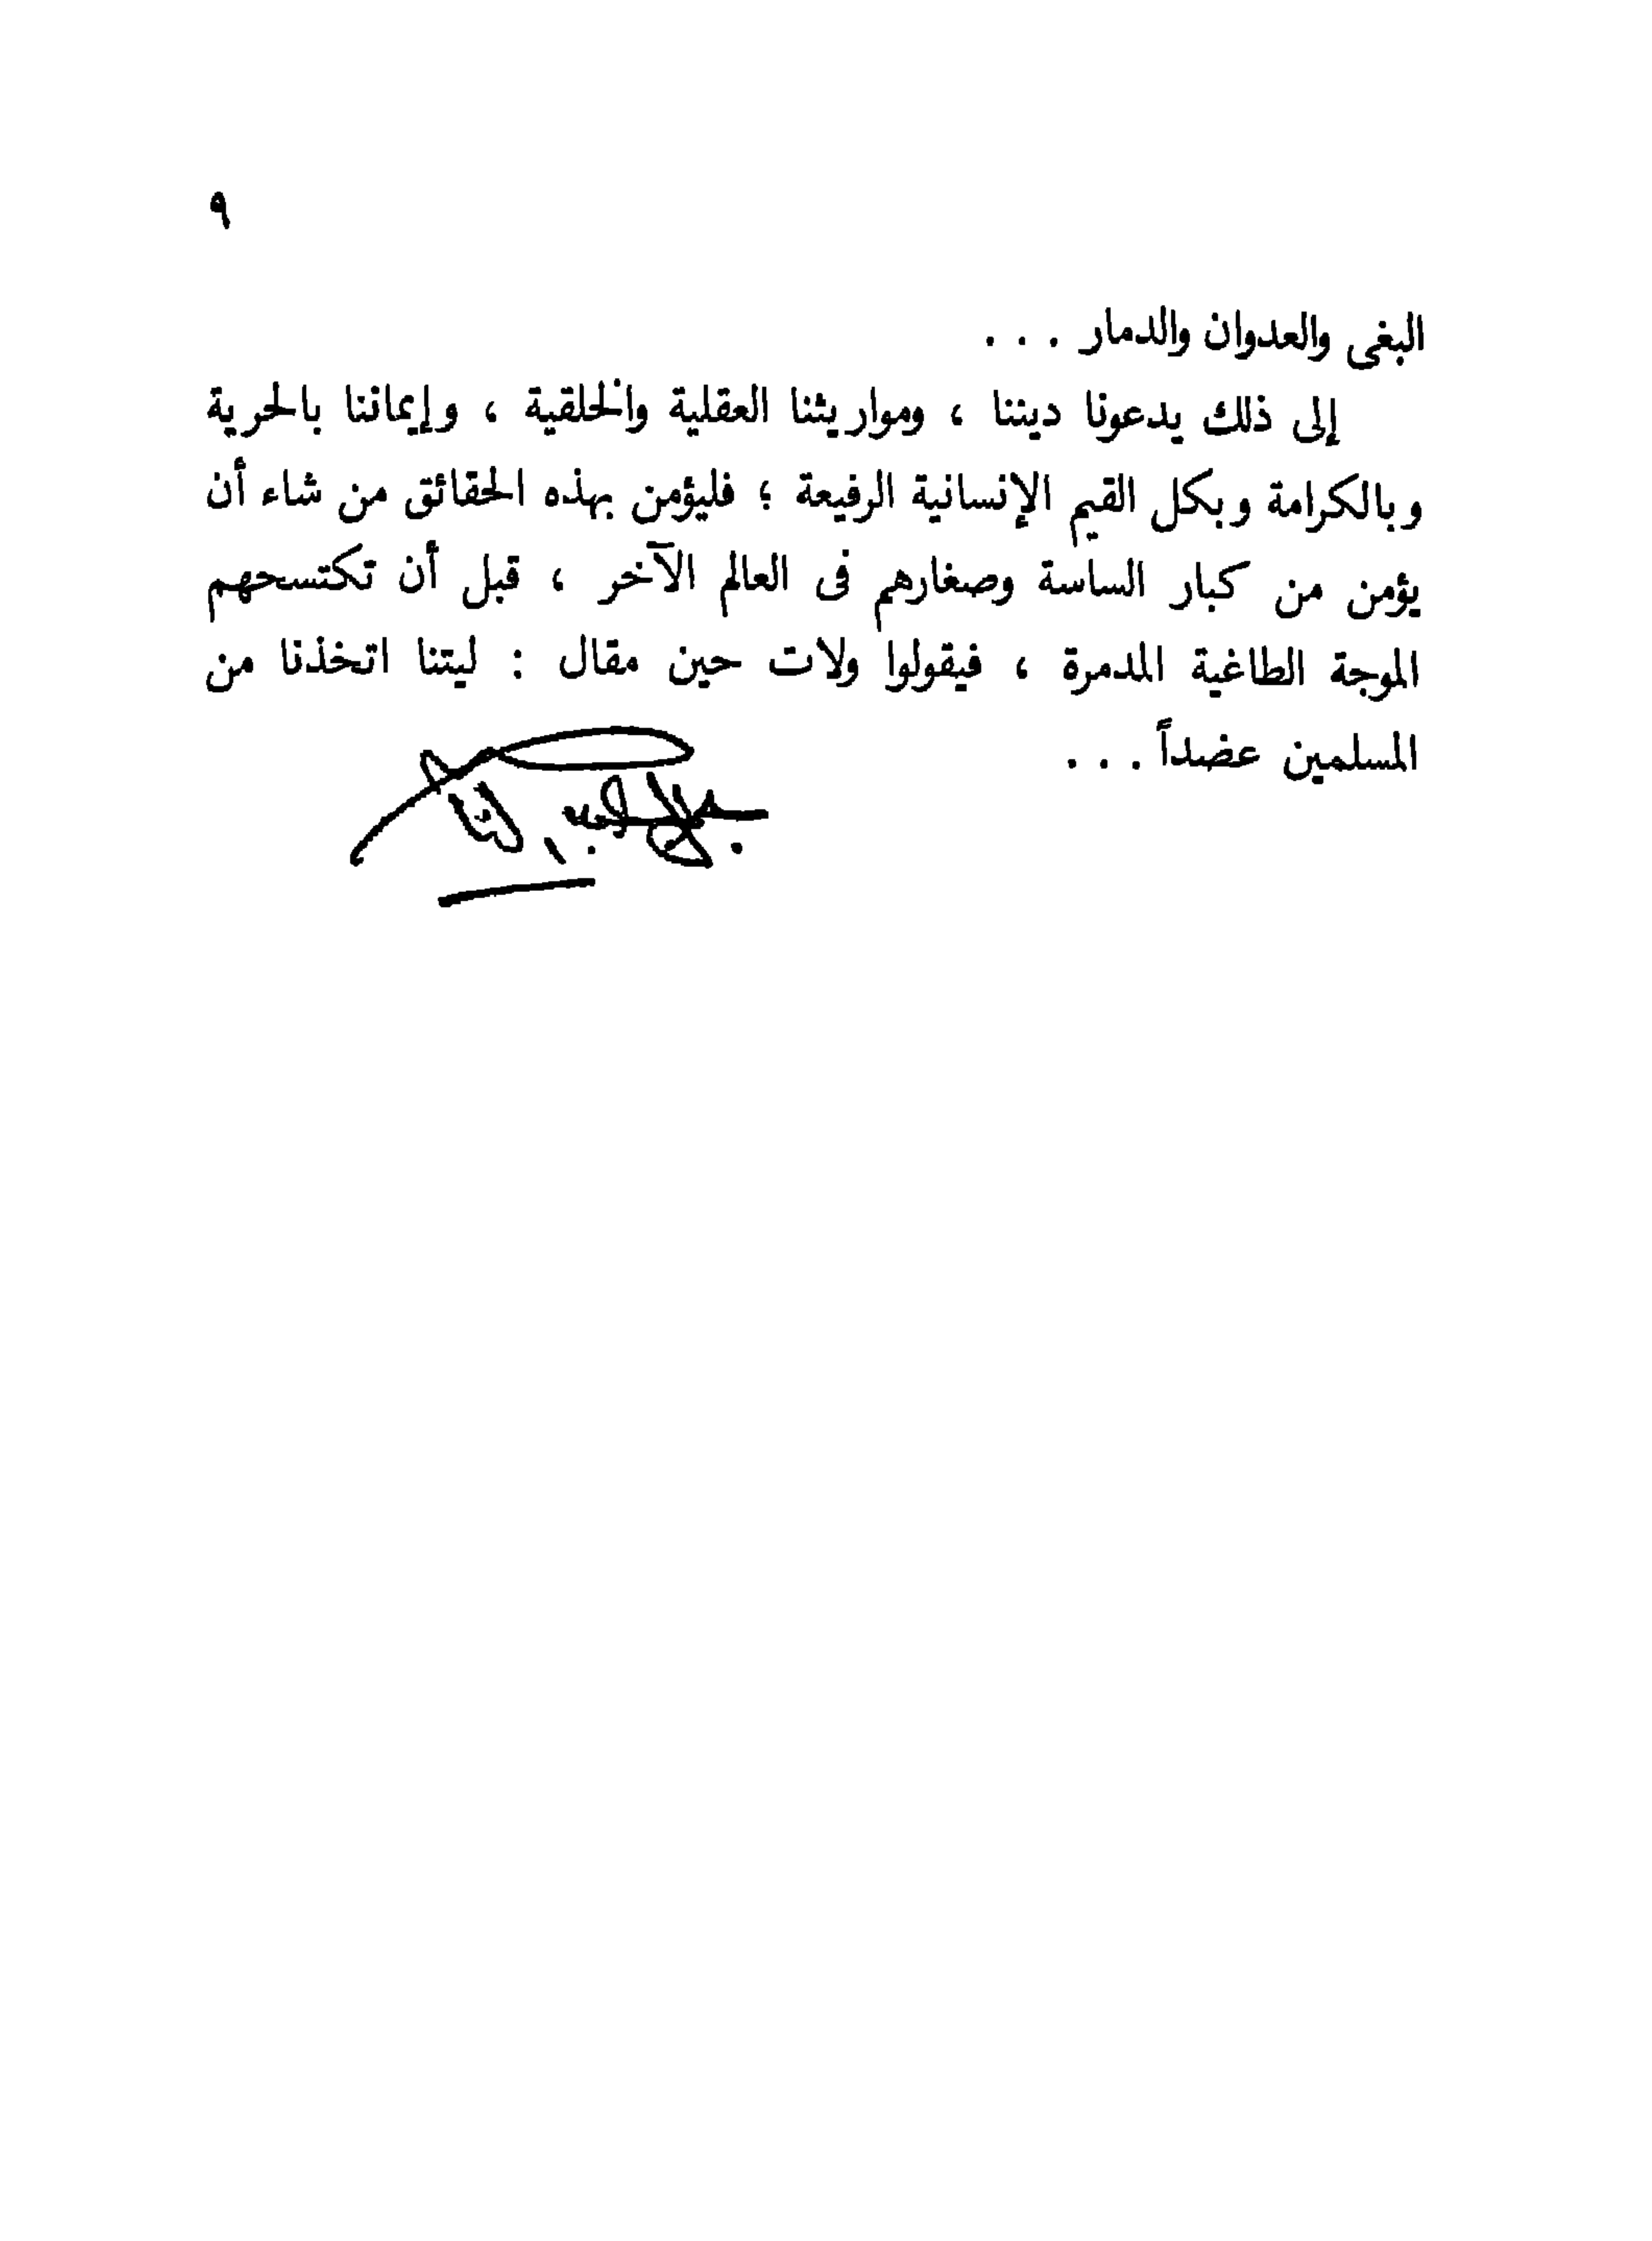 ٩
البغى والعدوان والدمار . . .
إلى ذلك يدعونا ديننا ، ومواريثنا العقلية والخلقية ، وإيماننا بالحرية
وبالكرامة وبكل القيم الإنسانية الرفيعة ؛ فليؤمن بهذه الحقائق من شاء أن
يؤمن من كبار الساسة وصغارهم فى العالم الآخر ، قبل أن تكتسحهم
الموجة الطاغية المدمرة ، فيقولوا ولات حين مقال : ليتنا اتخذنا من
المسلمين عضداً . . .